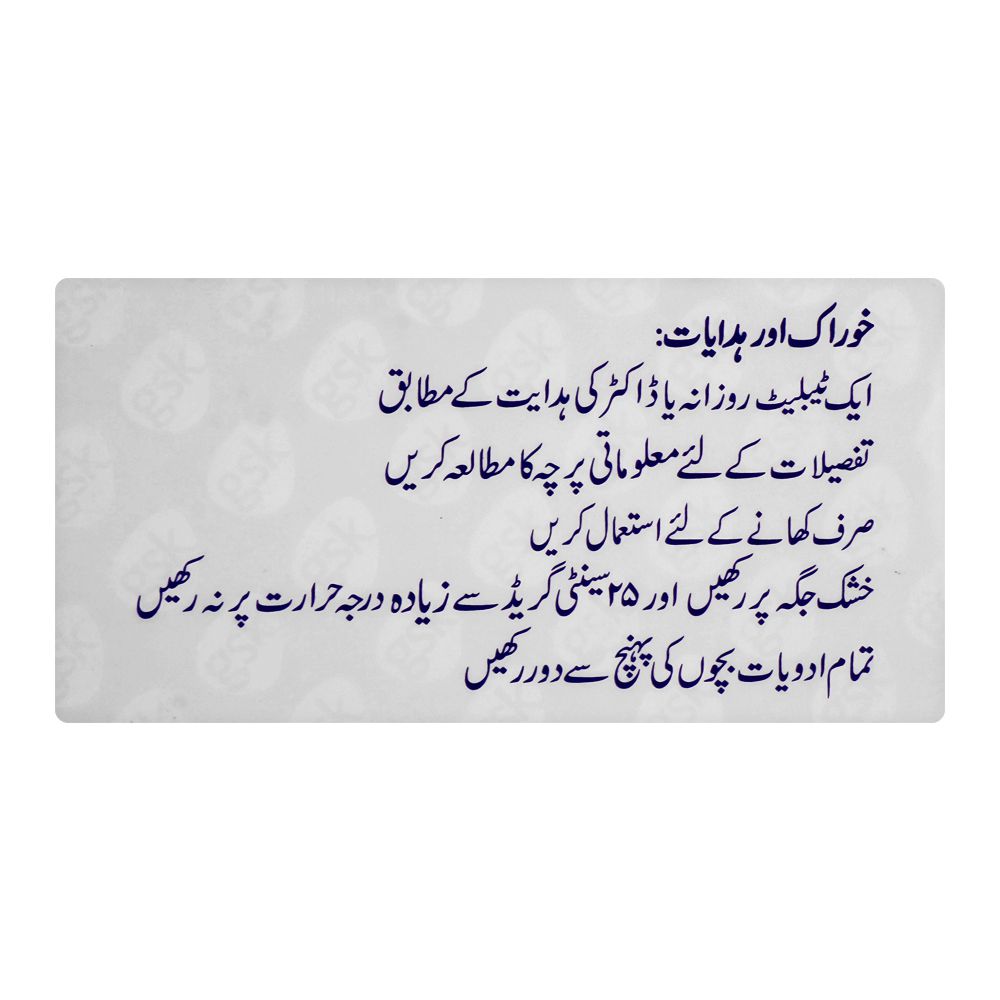 خوراک اور ہدایات:
ایک ٹیبلیٹ روزانہ یا ڈاکٹر کی ہدایت کے مطابق
تفصیلات کے لئے معلوماتی پرچہ کا مطالعہ کریں
صرف کھانے کے لئے استعمال کریں
خشک جگہ پر رکھیں اور ۲۵ سینٹی گریڈ سے زیادہ درجہ حرارت پر نہ رکھیں
تمام ادویات بچوں کی پہنچ سے دور رکھیں
gsk
gsk
gsk
gsk
gsk
gsk